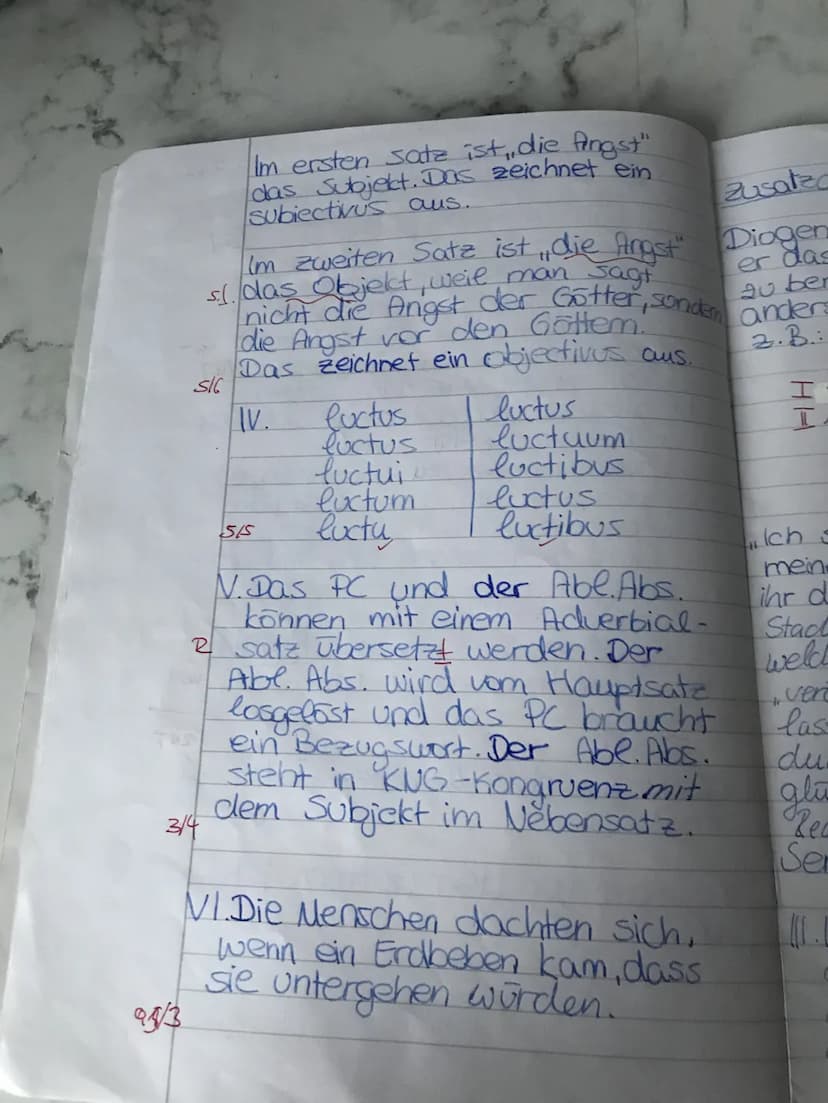 Im ersten Satz ist „die Angst"
das Subjekt. Das zeichnet ein
subiectivus aus.
Im zweiten Satz ist „die Angst"
s.l. das Objekt, weil man sagt
nicht die Angst der Götter, sondern
die Angst vor den Göttern.
Das zeichnet ein objectivus aus.
5/6
IV. luctus luctus
luctus luctuum
luctui luctibus
luctum luctus
5/5 luctu luctibus
V. Das PC und der Abl. Abs.
können mit einem Adverbial-
R satz übersetzt werden. Der
Abl. Abs. wird vom Hauptsatz
losgelöst und das PC braucht
ein Bezugswort. Der Abl. Abs.
steht in KNG-Kongruenz mit
dem Subjekt im Nebensatz.
3/4
VI. Die Menschen dachten sich,
wenn ein Erdbeben kam, dass
sie untergehen würden.
Diogen
er das
zu ber
anders
z.B.:
I
II
„Ich s
mein
ihr d
Stad
weld
„ver
las
du
glü
Sei
III.